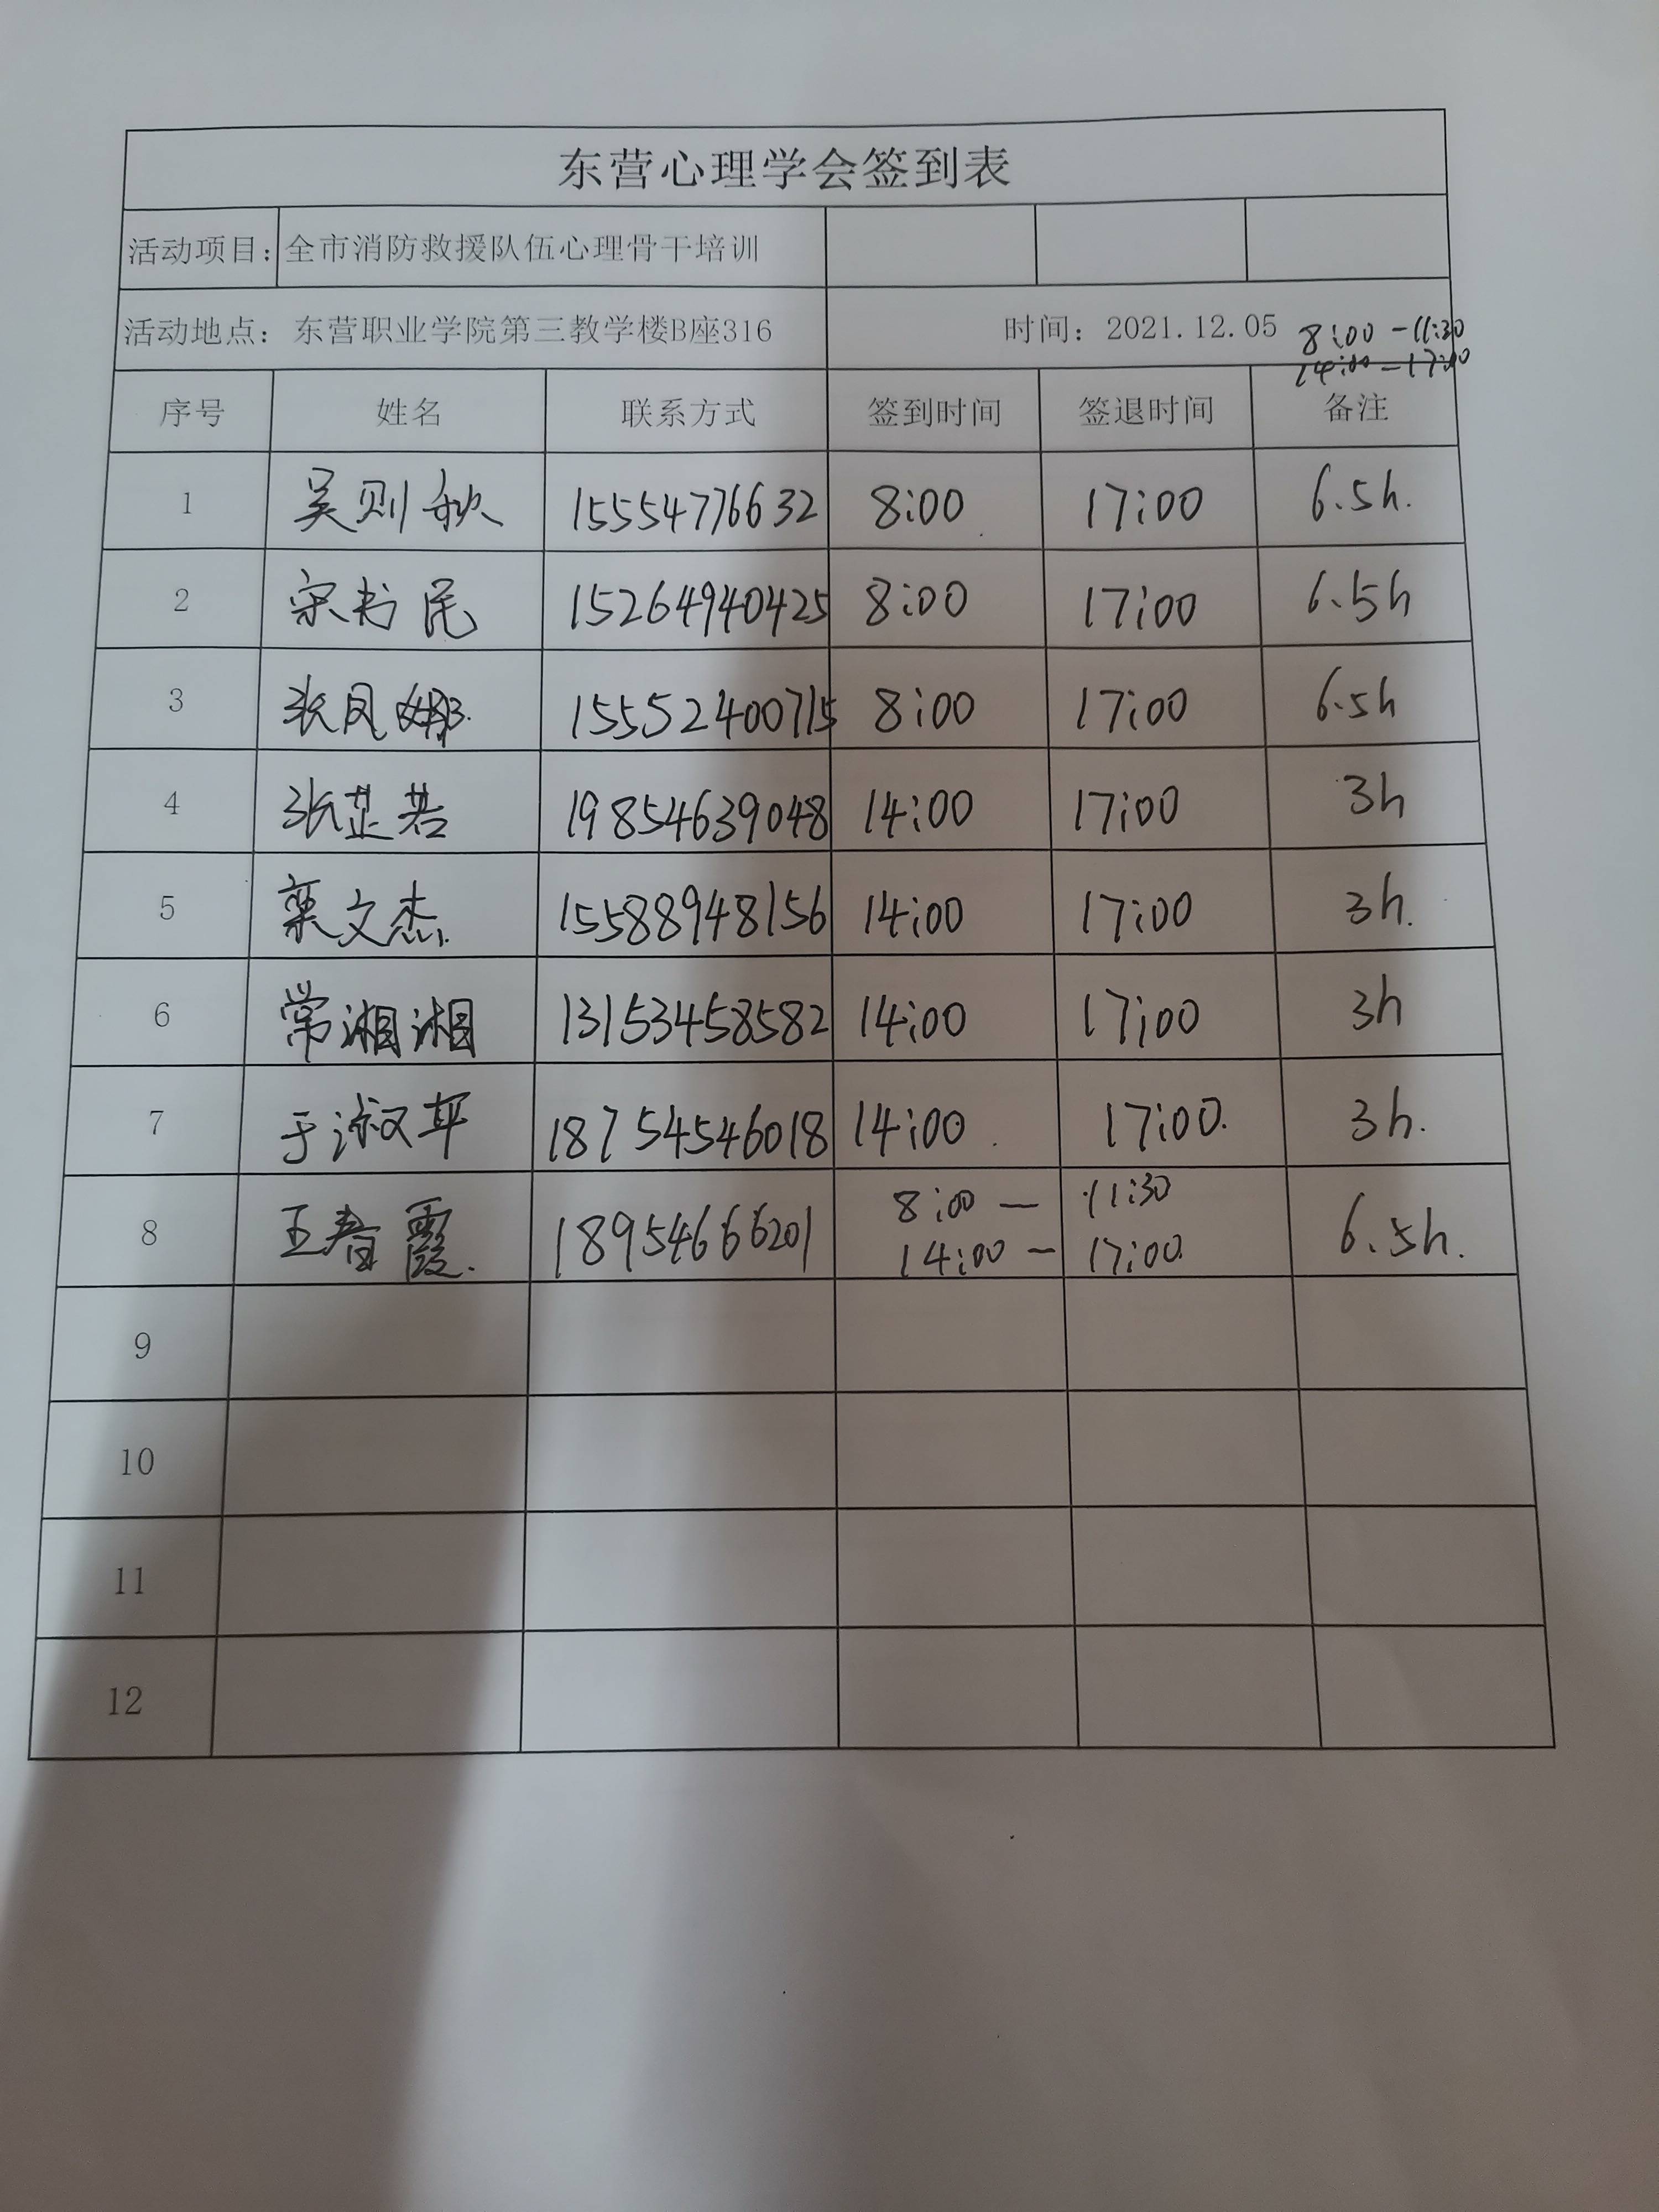 东营心理学会签到表
活动项目：全市消防救援队伍心理骨干培训
活动地点：东营职业学院第三教学楼B座316 时间：2021.12.05 8:00-11:30
14:00-17:00
序号 姓名 联系方式 签到时间 签退时间 备注
1 吴则秋 15554776632 8:00 17:00 6.5h.
2 宋书民 15264940425 8:00 17:00 6.5h
3 张凤娜 15552400715 8:00 17:00 6.5h
4 张芷若 19854639048 14:00 17:00 3h
5 栾文杰 15588948156 14:00 17:00 3h.
6 常湘湘 13153458582 14:00 17:00 3h
7 于淑 18754546018 14:00 17:00. 3h.
8 王春霞. 18954666201 8:00 — 11:30 6.5h.
14:00 — 17:00.
9
10
11
12